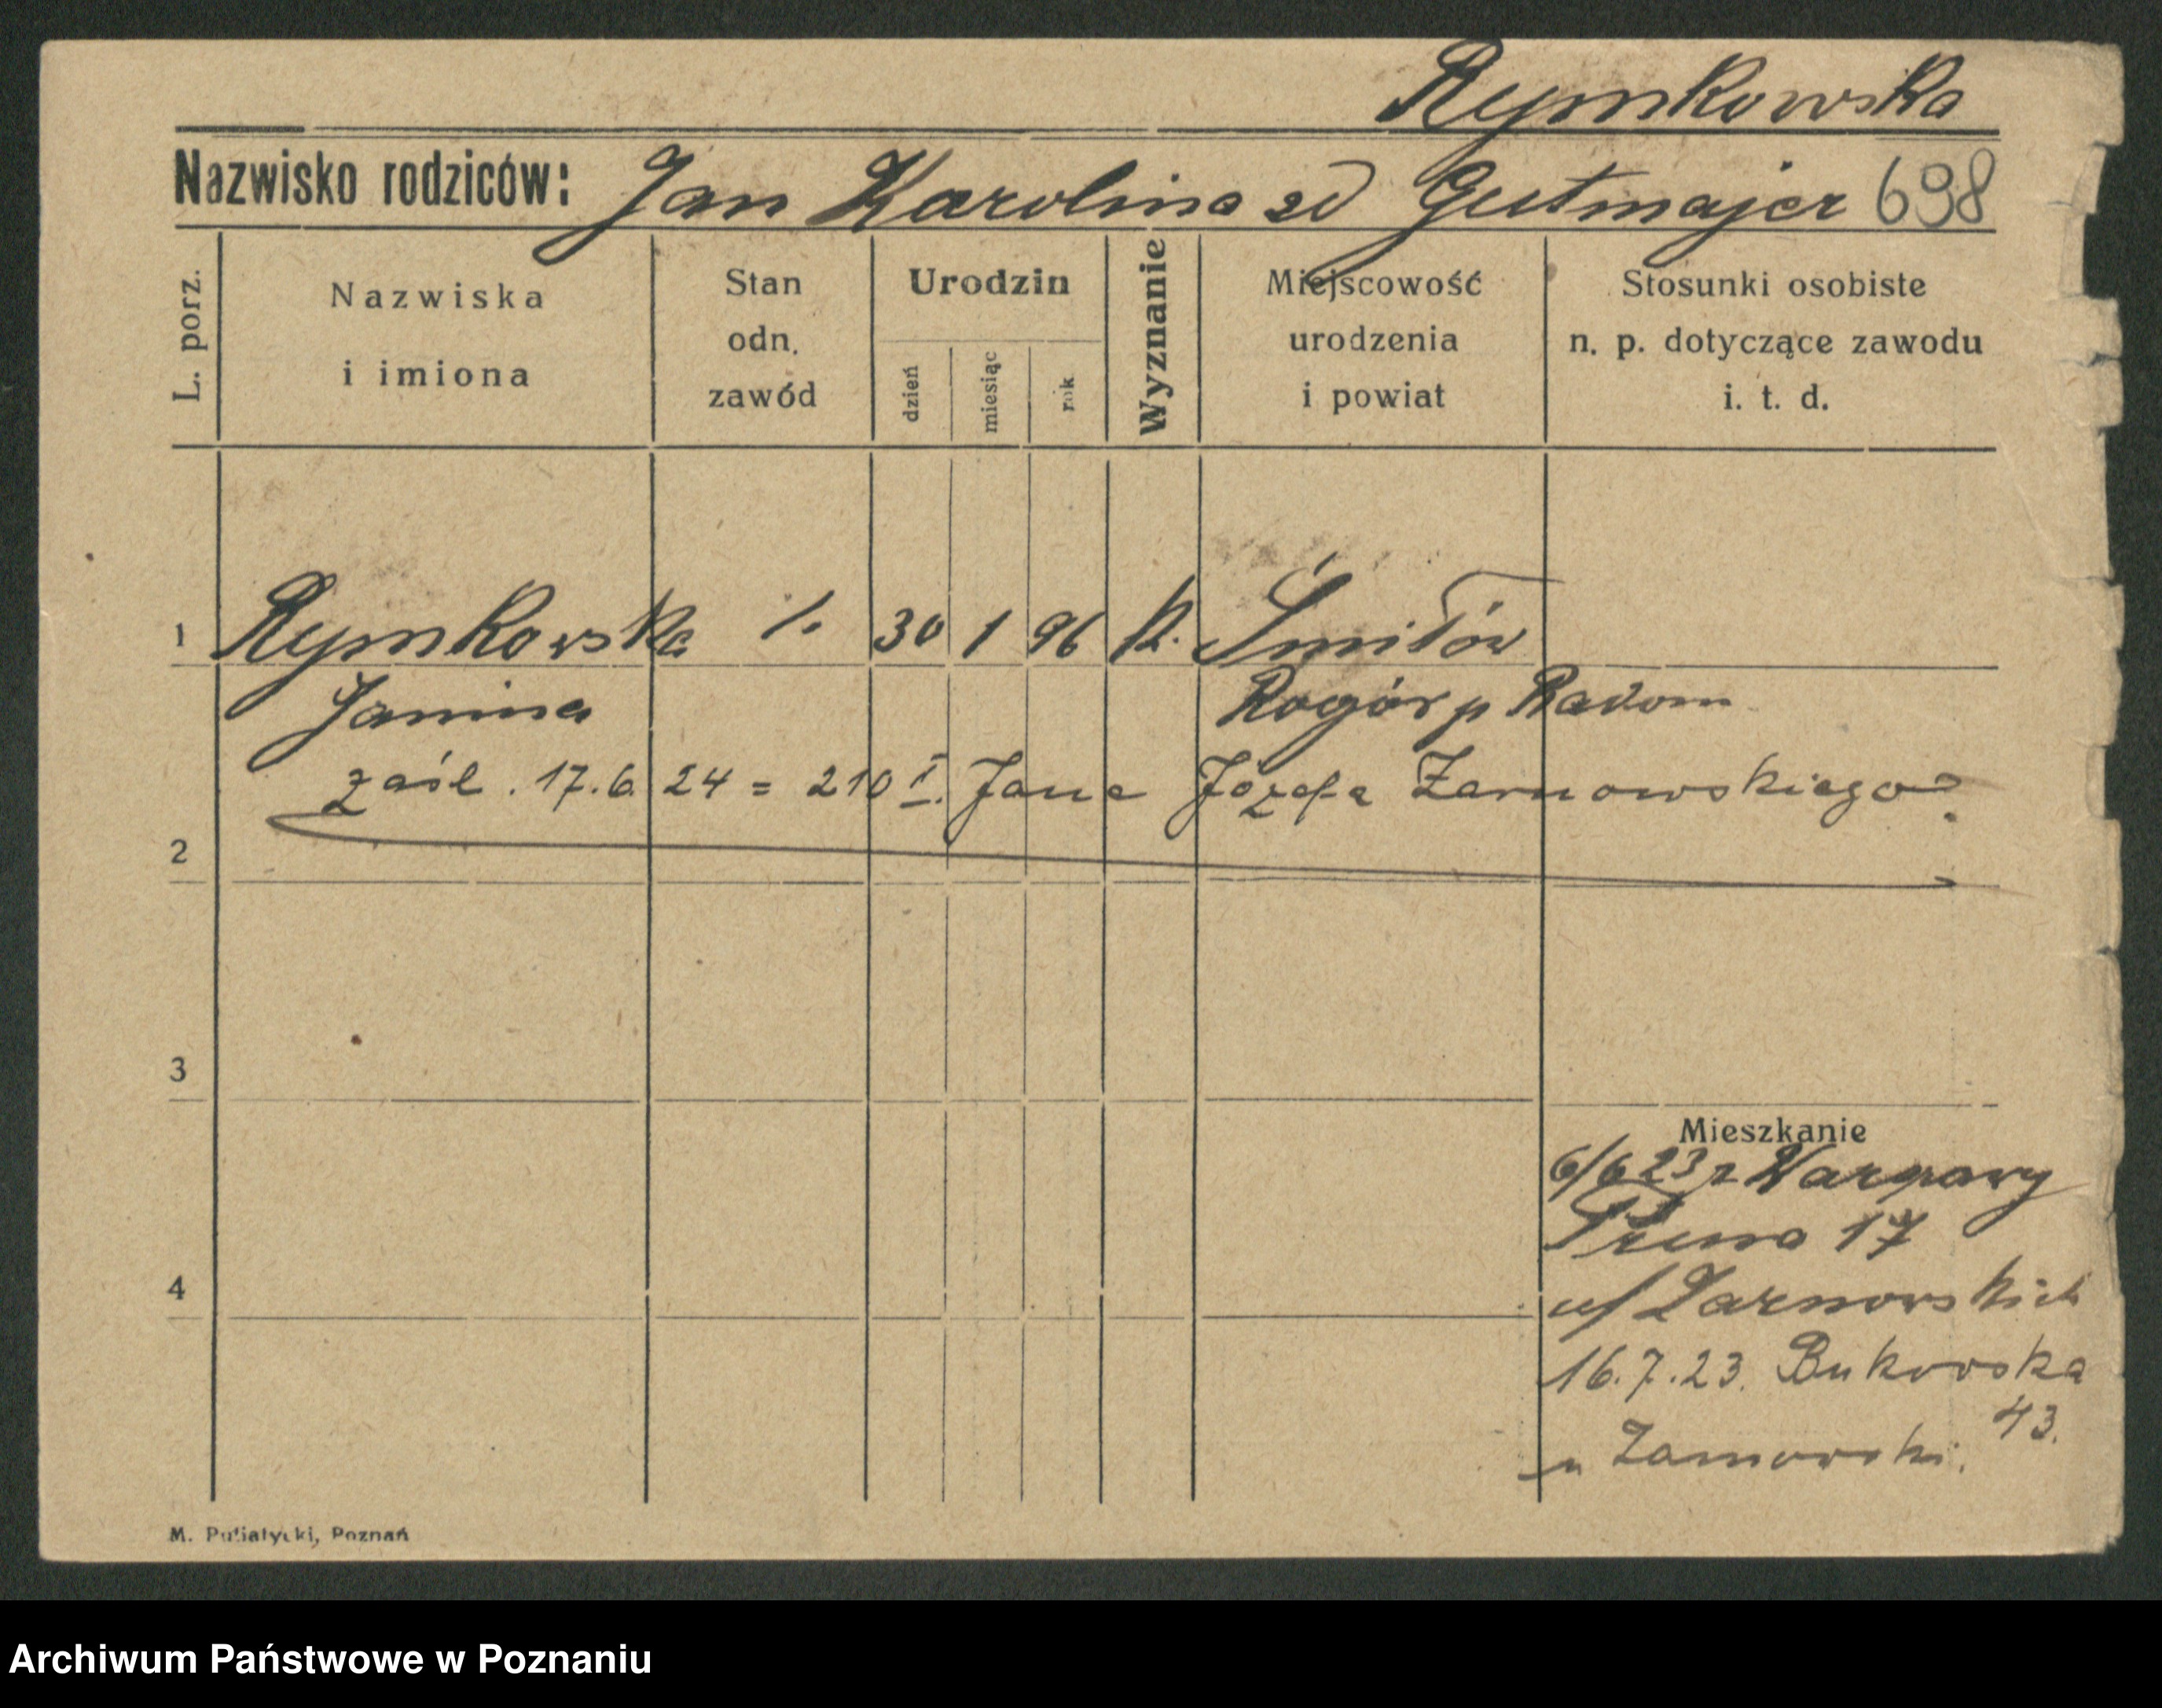 Rymkowska
Nazwisko rodziców: Jan Karolina zd Gutmajer 698
L. porz.
Nazwiska i imiona
Stan odn. zawód
Urodzin
dzień miesiąc rok
Wyznanie
Miejscowość urodzenia i powiat
Stosunki osobiste n. p. dotyczące zawodu i. t. d.
1 Rymkowska /. 30 1 96 k. Śmiłów
Janina Rogów p Radom
zaśl. 17.6.24 = 210 I. Jana Józefa Żarnowskiego
2
3
Mieszkanie
6/6 23 z Warszawy
17
4
u/ Żarnowskich
16.7.23. Bukowska
43.
u Żarnowski.
M. Putiatycki, Poznań
Archiwum Państwowe w Poznaniu